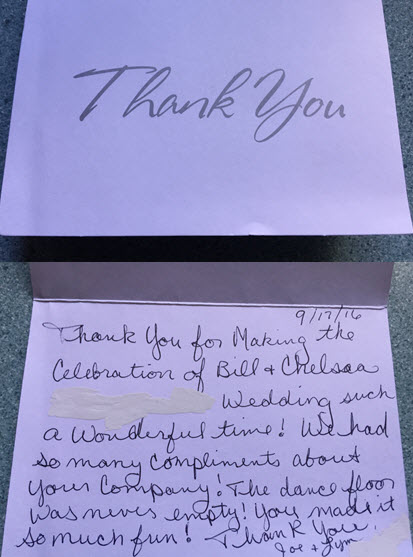 Thank You
9/17/16
Thank You for Making the
Celebration of Bill & Chelsea
Wedding such
a Wonderful time! We had
so many compliments about
your Company! The dance floor
was never empty! You made it
so much fun! Thank You,
Joe + Lynn